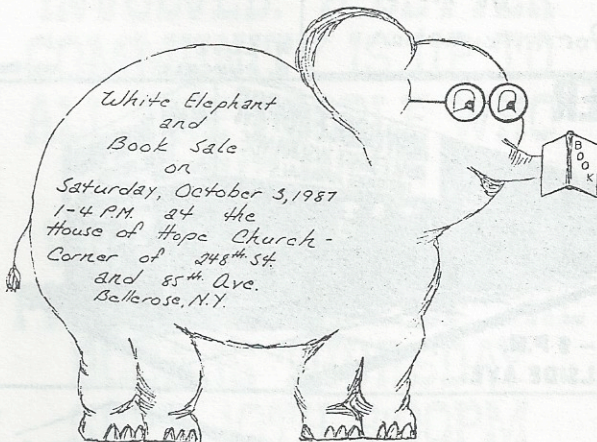 White Elephant
and
Book Sale
on
Saturday, October 3, 1987
1-4 P.M. at the
House of Hope Church -
Corner of 248th St.
and 85th Ave.
Bellerose, N.Y.
BOOK
- 8 P.M.
LSIDE AVE